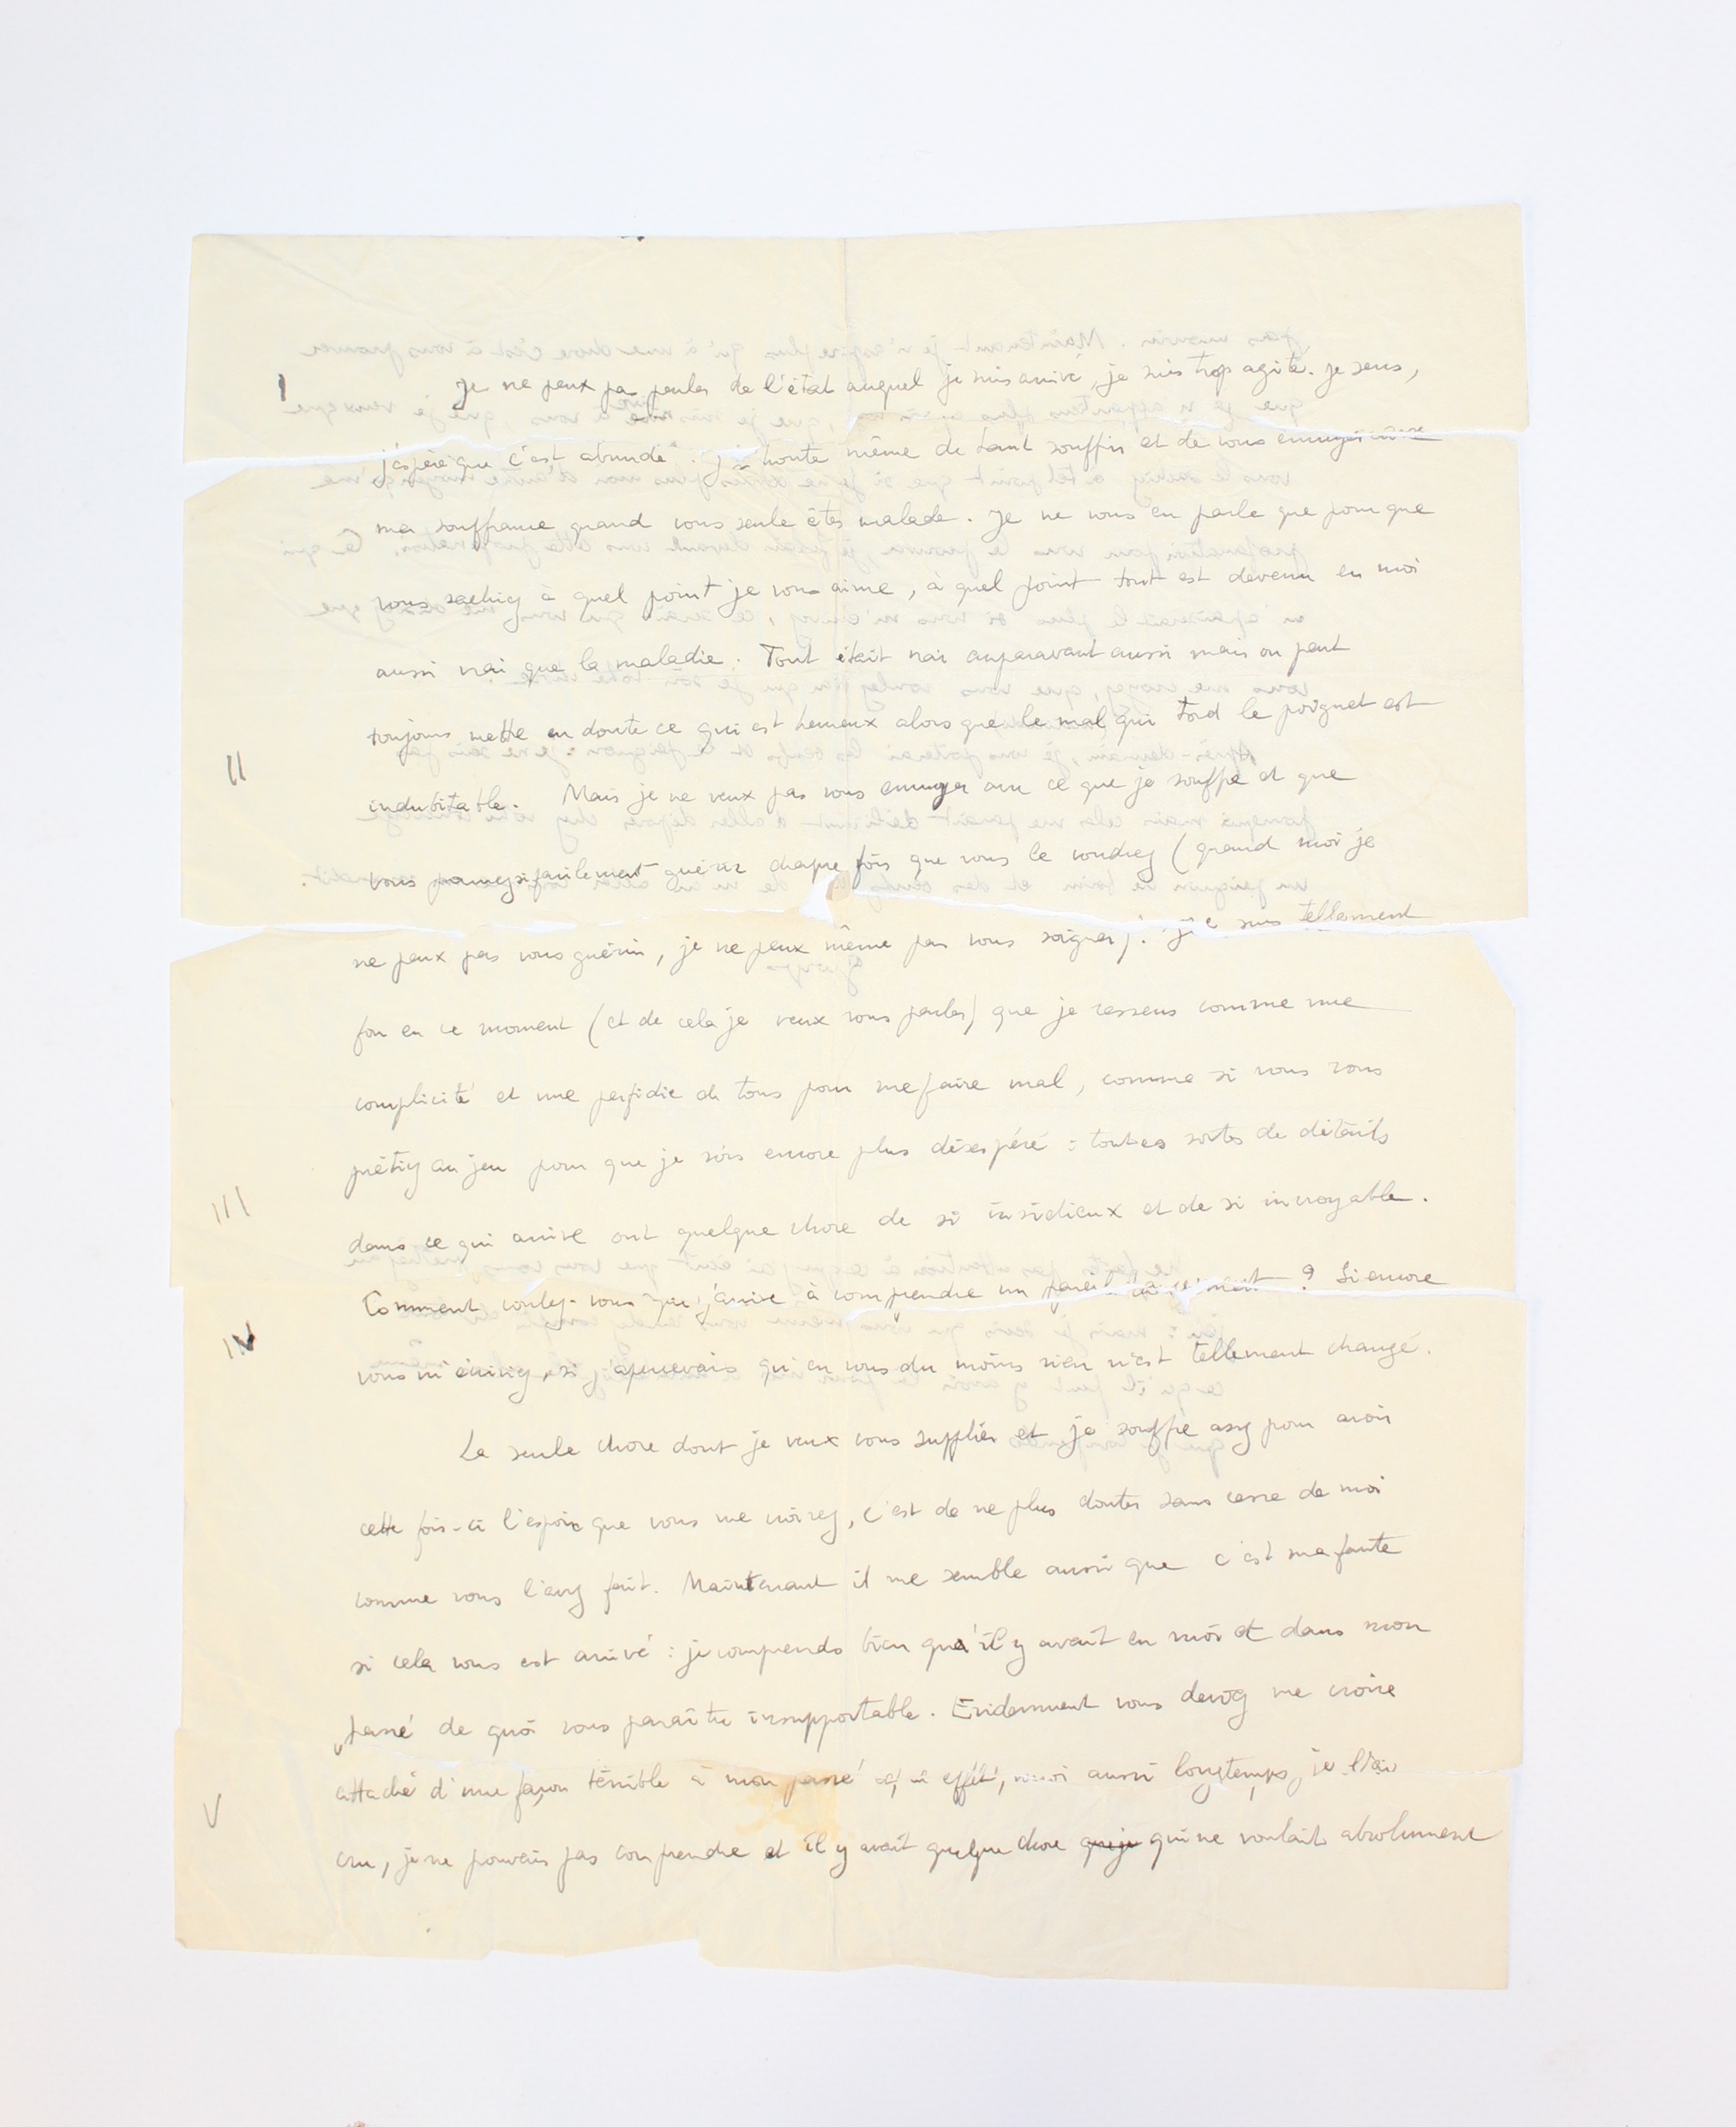 I
Je ne peux pas parler de l'état auquel je suis arrivé, je suis trop agité. Je sens,
j'espère que c'est absurde. J'ai honte même de tant souffrir et de vous ennuyer avec
ma souffrance quand vous seule êtes malade. Je ne vous en parle que pour que
vous sachiez à quel point je vous aime, à quel point tout est devenu en moi
aussi vrai que la maladie. Tout était vrai auparavant aussi mais on peut
toujours mettre en doute ce qui est heureux alors que le mal qui tord le poignet est
II
indubitable. Mais je ne veux pas vous ennuyer avec ce que je souffre et que
vous pouvez si facilement guérir chaque fois que vous le voudrez (quand moi je
ne peux pas vous guérir, je ne peux même pas vous soigner). Je suis tellement
fou en ce moment (et de cela je veux vous parler) que je ressens comme une
complicité et une perfidie de tous pour me faire mal, comme si vous vous
prêtiez au jeu pour que je sois encore plus désespéré : toutes sortes de détails
III
dans ce qui arrive ont quelque chose de si insidieux et de si incroyable.
Comment voulez-vous que j'arrive à comprendre un pareil ? Si encore
IV
vous m'écriviez, si j'apercevais qu'en vous du moins rien n'est tellement changé.
La seule chose dont je veux vous supplier et je souffre assez pour avoir
cette fois-ci l'espoir que vous me croirez, c'est de ne plus douter sans cesse de moi
comme vous l'avez fait. Maintenant il me semble aussi que c'est ma faute
si cela vous est arrivé : je comprends bien qu'il y avait en moi et dans mon
passé de quoi vous paraître insupportable. Evidemment vous deviez me croire
attaché d'une façon terrible à mon passé et, en effet, moi aussi longtemps je l'ai
V
cru, je ne pouvais pas comprendre et il y avait quelque chose que je qui ne voulait absolument